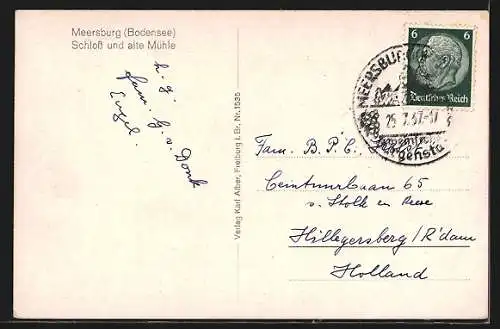 Meersburg (Bodensee)
Schloß und alte Mühle
h. g.
fam. G. v. Donk
Engel.
Verlag Karl Alber, Freiburg i. Br. Nr. 1535
6 6
Deutsches Reich
MEERSBURG
25.7.37-17
Fam. B. P. C.
Ceintuurbaan 65
v. Stolk en Reese
Hillegersberg/R'dam
Holland